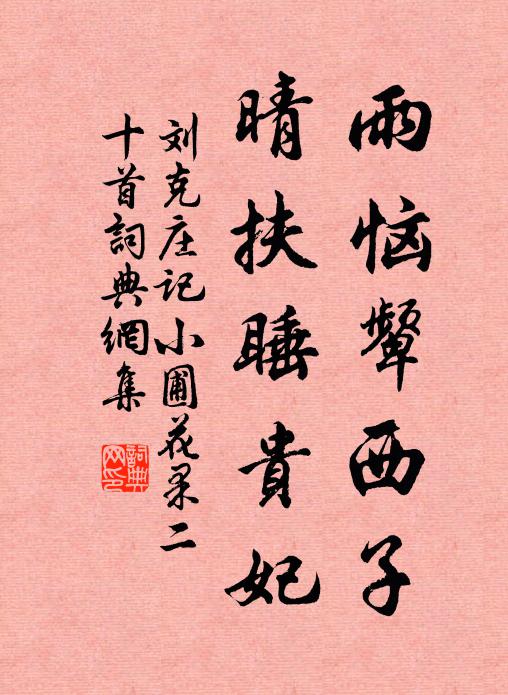 雨恼颦西子
晴扶睡貴妃
刘克庄记小圃花果二
十首詞典網集
詞典网印